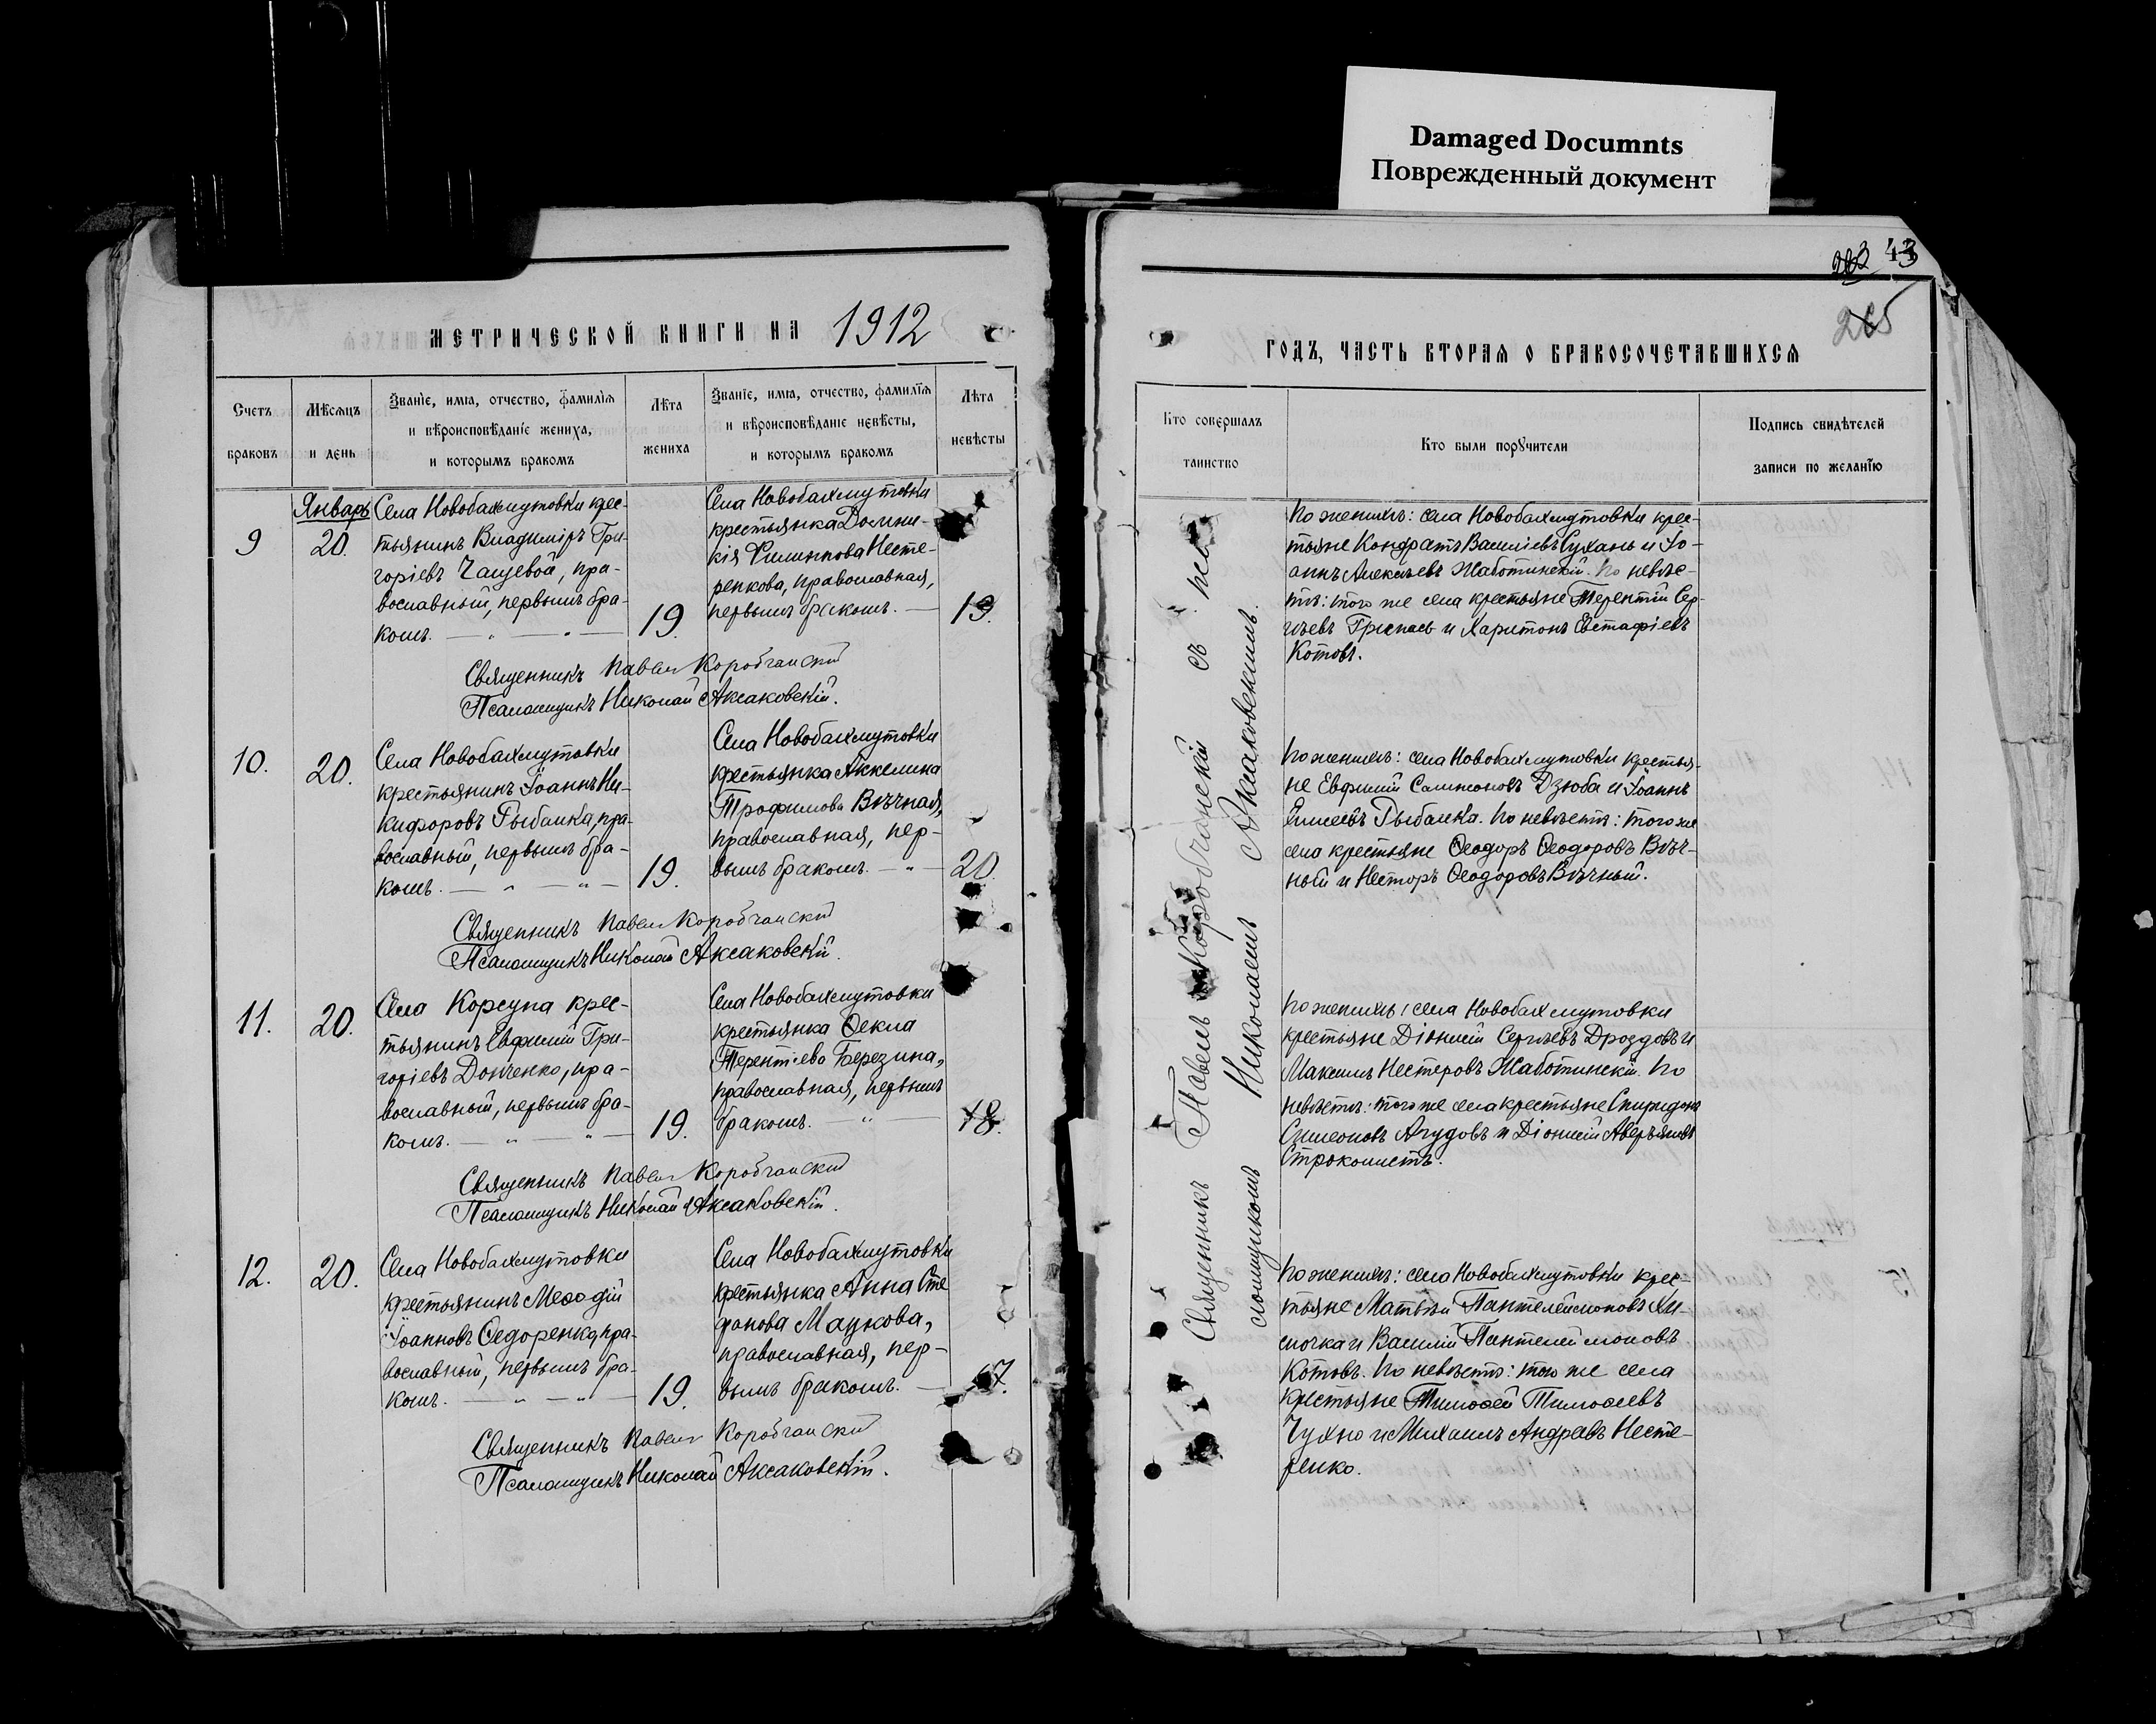 Damaged Documnts
Поврежденный документ
43
МЕТРИЧЕСКОЙ КНИГИ НА 1912
Счетъ браковъ
Мѣсяцъ и день
Званіе, имя, отчество, фамилїя и вѣроисповѣданіе жениха, и которымъ бракомъ
Лѣта жениха
Званіе, имя, отчество, фамилїя и вѣроисповѣданіе невѣсты, и которымъ бракомъ
Лѣта невѣсты
9
Январь
20.
Села Новобахмутовки крес-
тьянинъ Владиміръ Гри-
горіевъ Чащевой, пра-
вославный, первымъ бра-
комъ.
19.
Села Новобахмутовки
крестьянка Домни-
кія Филиппова Несте-
ренкова, православная,
первымъ бракомъ.
19.
Священникъ Павелъ Коробчанскій
Псаломщикъ Николай Аксаковскій.
10.
20.
Села Новобахмутовки
крестьянинъ Іоаннъ Ни-
кифоровъ Рыбалка, пра-
вославный, первымъ бра-
комъ.
19.
Села Новобахмутовки
крестьянка Аккелина
Трофимова Вѣчная,
православная, пер-
вымъ бракомъ.
20.
Священникъ Павелъ Коробчанскій
Псаломщикъ Николай Аксаковскій.
11.
20.
Села Корсуна крес-
тьянинъ Евфимій Гри-
горіевъ Донченко, пра-
вославный, первымъ бра-
комъ.
19.
Села Новобахмутовки
крестьянка Ѳекла
Терентіева Березина,
православная, первымъ
бракомъ.
18.
Священникъ Павелъ Коробчанскій
Псаломщикъ Николай Аксаковскій.
12.
20.
Села Новобахмутовки
крестьянинъ Меѳодій
Іоанновъ Ѳедоренко, пра-
вославный, первымъ бра-
комъ.
19.
Села Новобахмутовки
крестьянка Анна Сте
фанова Маукова,
православная, пер-
вымъ бракомъ.
17.
Священникъ Павелъ Коробчанскій
Псаломщикъ Николай Аксаковскій.
ГОДЪ, ЧАСТЬ ВТОРАЯ О БРАКОСОЧЕТАВШИХСЯ
Кто совершалъ таинство
Кто были порꙋчители
Подпись свидѣтелей записи по желанїю
Священникъ Павелъ Коробчанскій съ пса-
ломщикомъ Николаемъ Аксаковскимъ.
По женихѣ: села Новобахмутовки крес-
тьяне Кондратъ Василіевъ Сухань и Іо-
аннъ Алексѣевъ Жаботинскій. По невѣс-
тѣ: того же села крестьяне Терентій Сер-
гѣевъ и Харитонъ Евстафіевъ
Котовъ.
По женихѣ: села Новобахмутовки крестья-
не Евфимій Сампсоновъ Дзюба и Іоаннъ
Елисеевъ Рыбалка. По невѣстѣ: того же
села крестьяне Ѳеодоръ Ѳеодоровъ Вѣч-
ный и Несторъ Ѳеодоровъ Вѣчный.
По женихѣ: села Новобахмутовки
крестьяне Діонисій Сергѣевъ Дроздовъ и
Максимъ Нестеровъ Жаботинскій. По
невѣстѣ: того же села крестьяне Спиридонъ
Симеоновъ Агудовъ и Діонисій Аверьяновъ
Строколистъ.
По женихѣ: села Новобахмутовки крес-
тьяне Матвѣй Пантелеймоновъ Хи-
мочка и Василій Пантелеймоновъ
Котовъ. По невѣстѣ: того же села
крестьяне Тимоѳей Тимоѳеевъ
Чухно и Михаилъ Андреевъ Несте-
ренко.